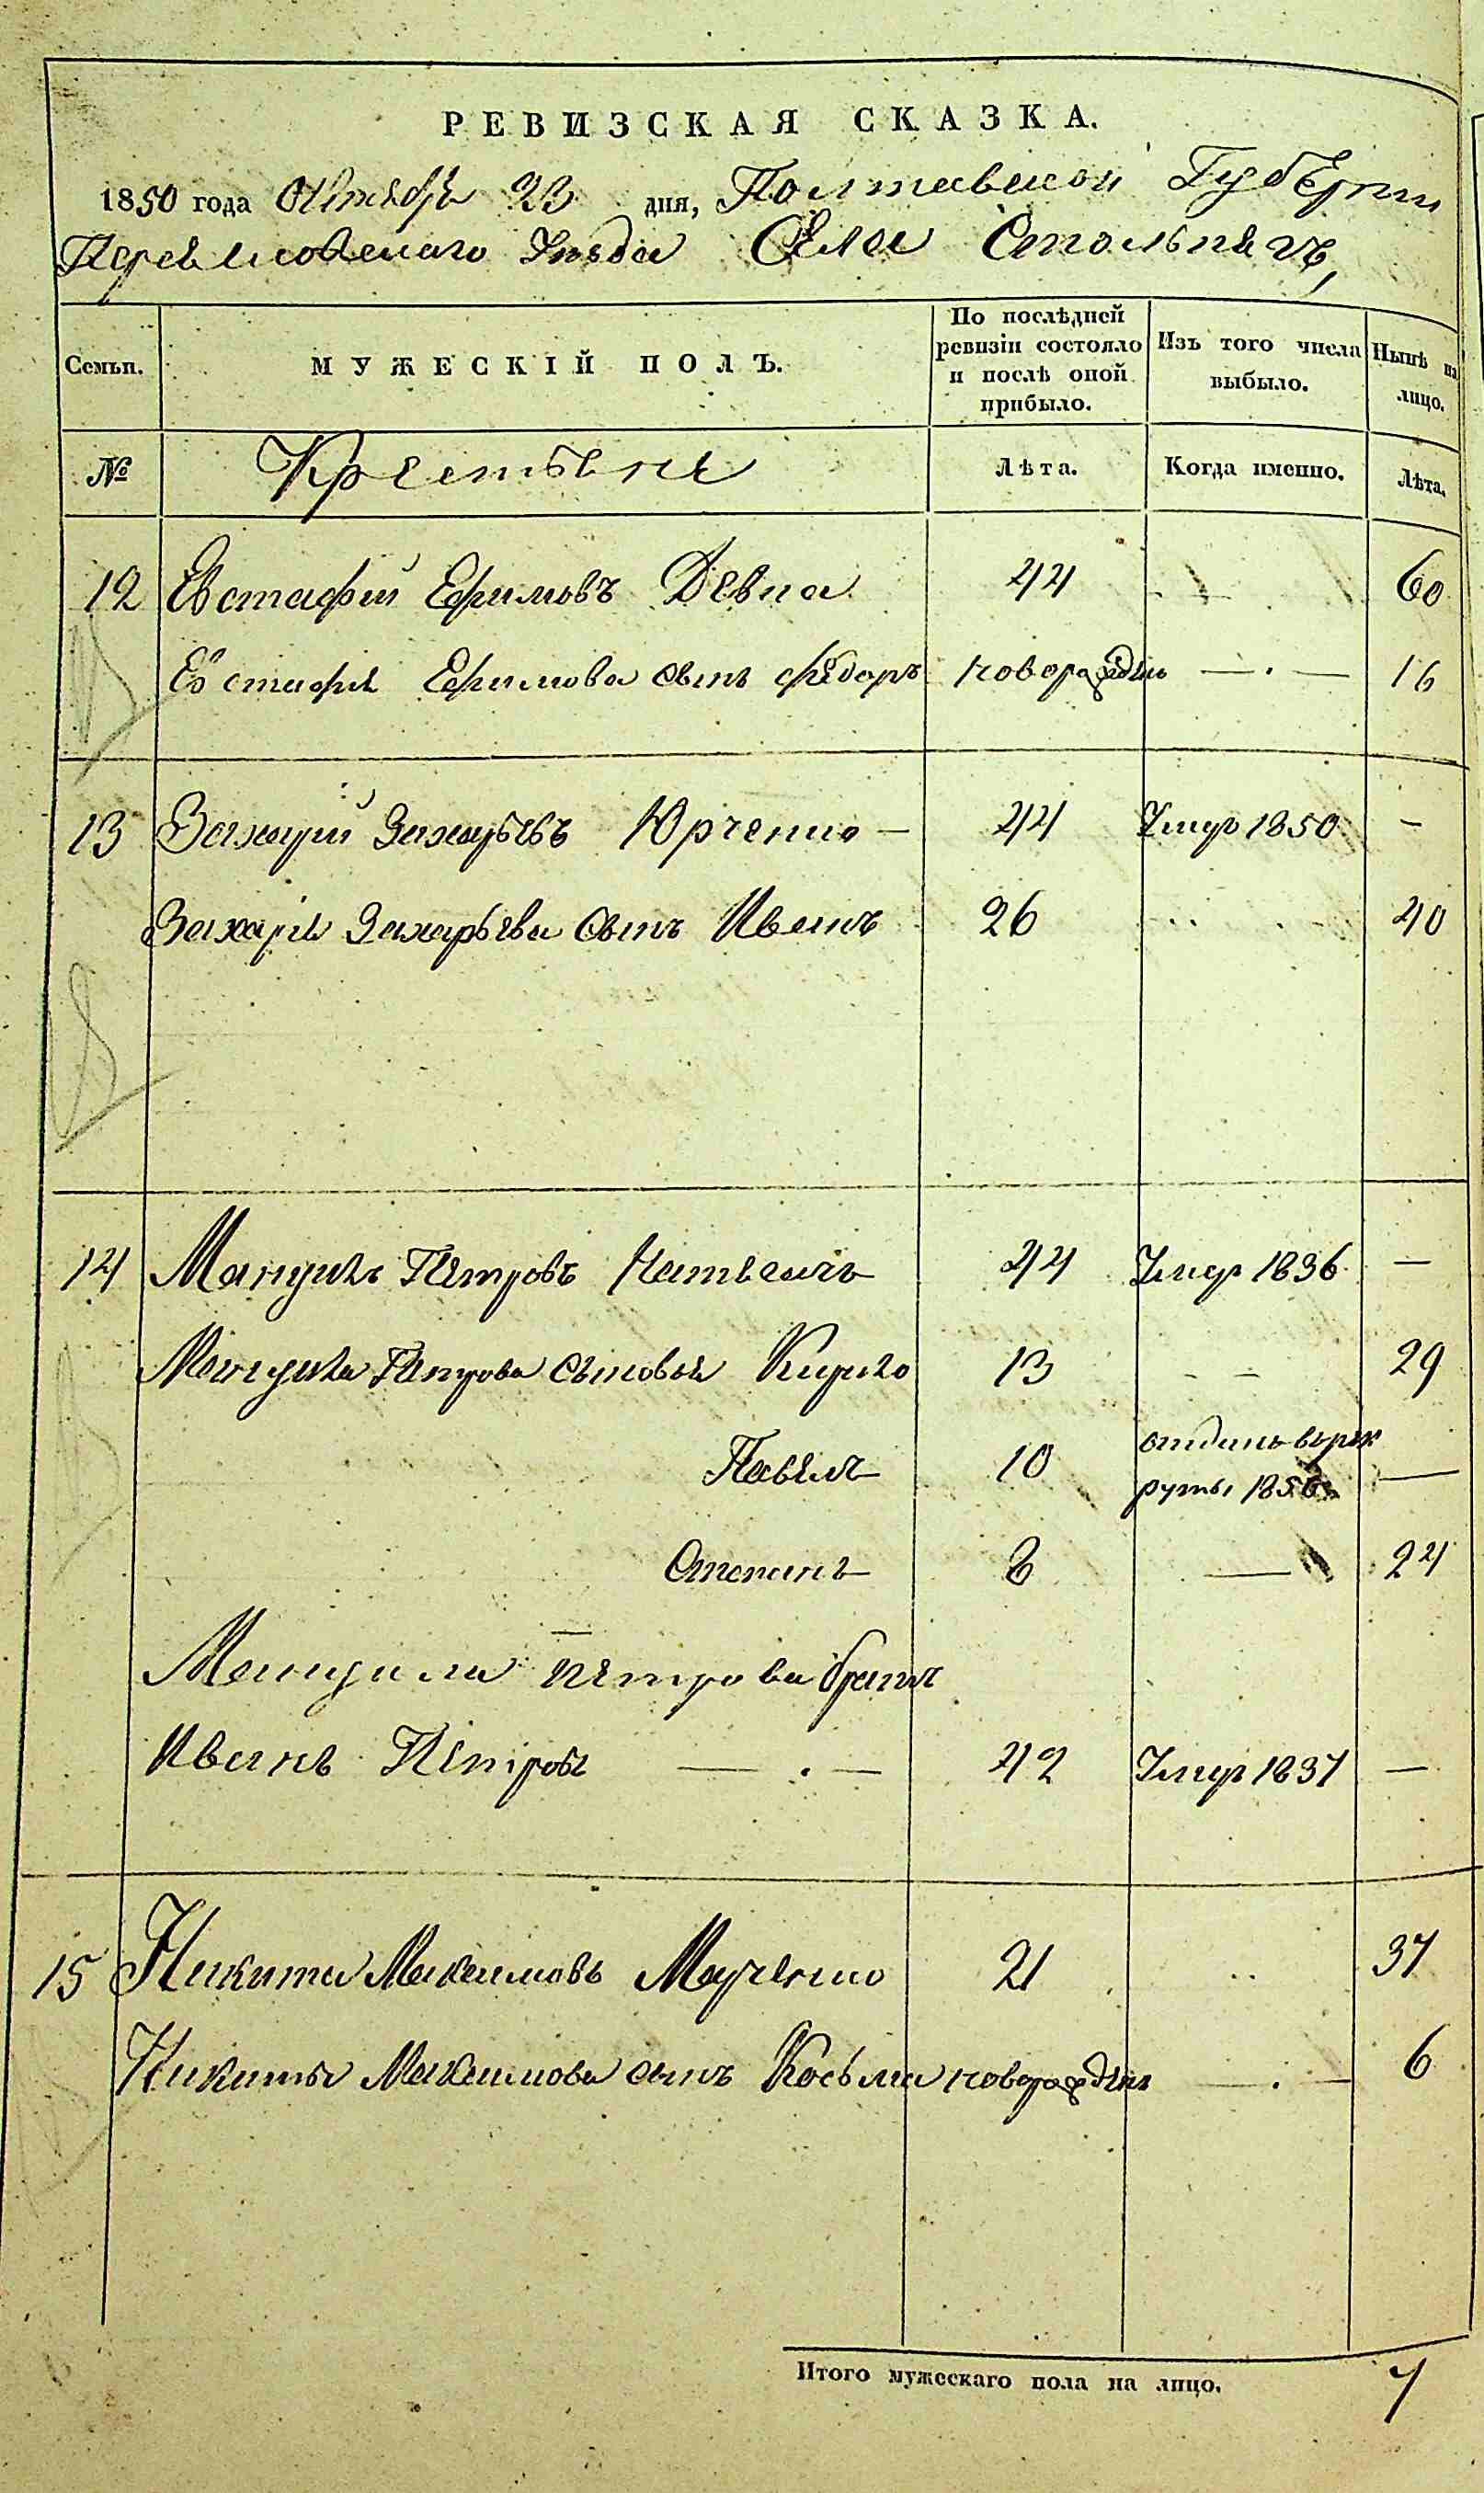 РЕВИЗСКАЯ СКАЗКА.
1850 года Октября 23 дня, Полтавской Губерніи
Переяславскаго Уезда Села Столпягъ,
Семьи. МУЖЕСКІЙ ПОЛЪ. По послѣдней ревизіи состояло и послѣ оной прибыло. Изъ того числа выбыло. Нынѣ на лицо.
№ Крестьяне Лѣта. Когда именно. Лѣта.
12 Евстафій Ефимовъ Девпа 44 — 60
Евстафія Ефимова сынъ Федоръ новорожден — . — 16
13 Захарій Захарьевъ Юрченко — 44 Умер 1850 —
Захарія Захарьева сынъ Иванъ 26 40
14 Петровъ 44 Умер 1836 —
Петрова сыновья Кирило 13 — — 29
Павелъ 10 отданъ в рек
руты 1850 —
Степанъ 8 — 24
Петрова братъ
Иванъ Петровъ — . — 42 Умер 1837 —
15 Никита Максимовъ Марченко 21 .. 37
Никиты Максимова сынъ Косьма новорожден — . — 6
Итого мужескаго пола на лицо. 7